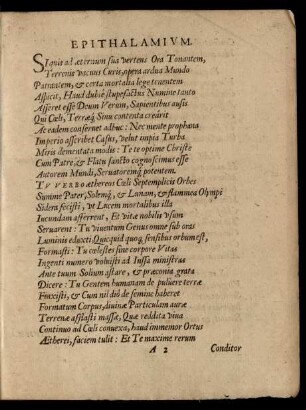 EPITHALAMIVM.
SI quis ad æternum sua vertens Ora Tonantem,
Terrenis vacuus Curis, opera ardua Mundo
Patrantem, & certa mortalia lege tenentem
Aspicit, Haud dubiè stupefactus Numine tanto
Asseret esse Deum Verum, Sapientibus ausis
Qui Cœli, Terræq́ Sinu contenta creârit
Ac eadem conservet adhuc: Nec mente prophana
Imperio ascribet Casus, velut impia Turba
Miris dementata modis: Te te optime Christe
Cum Patre, & Flatu sancto cognoscimus esse
Autorem Mundi, Servatoremq́ potentem.
TV VERO æthereos Cœli Septemplicis Orbes
Summe Pater, Solemq́, & Lunam, & flammea Olympi
Sidera fecisti, vt Lucem mortalibus illa
Iucundam afferrent, Et vitæ nobilis vsum
Servarent: Tu viventum Genus omne sub oras
Luminis eduxti: Quicquid quoq́ sensibus orbum est,
Formasti: Tu cœlestes sine corpore Vitas
Ingenti numero voluisti ad Iussa ministras
Ante tuum Solium astare, & præconia grata
Dicere: Tu Gentem humanam de puluere terræ
Finxisti, & Cum nil diô de semine haberet
Formatum Corpus, divinæ Particulam auræ
Terrenæ afflasti massæ, Quæ reddita viva
Continuo ad Cœli conuexa, haud immemor Ortus
Ætherei, faciem tulit: Et Te maxime rerum
A 2 Conditor